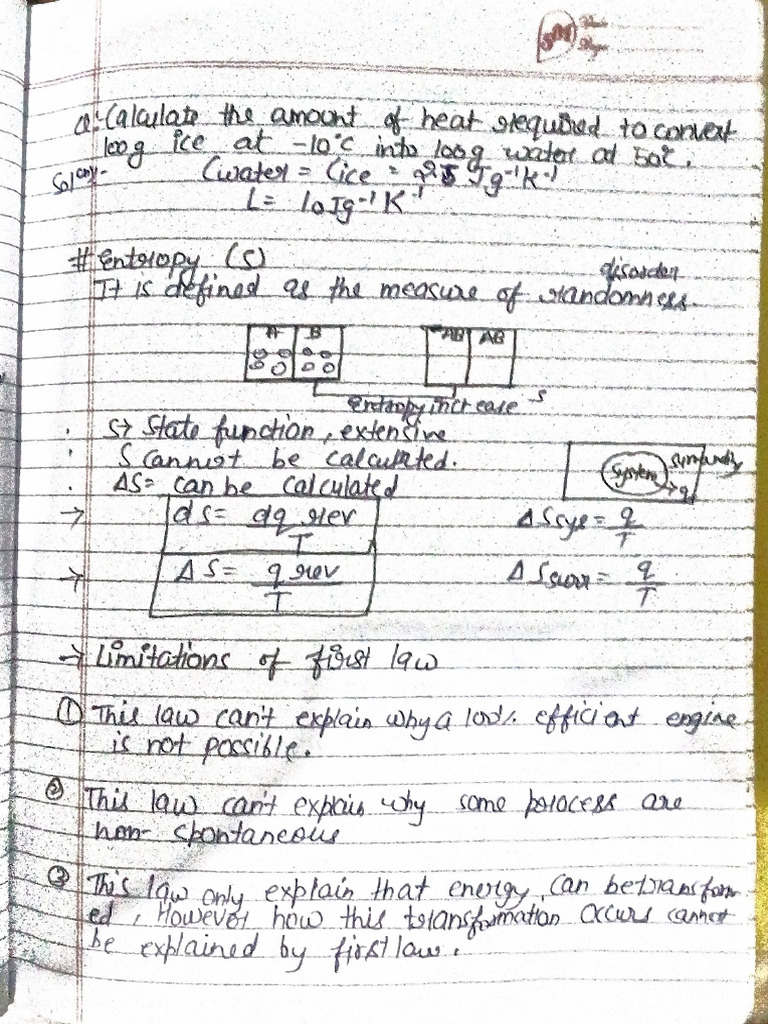 Q:- Calculate the amount of heat required to convert
100g ice at -10°c into 100g water at 50°c.
Soln:- Cwater = Cice = Jg⁻¹K⁻¹
L = 10Jg⁻¹K⁻¹
# Entropy (S)
disorder
It is defined as the measure of randomness.
A B AB AB
Entropy increase S
S→ State function, extensive
S cannot be calculated.
ΔS= can be calculated
System surrounding
q
→ ds = dq rev / T
ΔSsys = q/T
→ ΔS = q rev / T
ΔSsurr = q/T
→ Limitations of first law
① This law can't explain why a 100% efficient engine
is not possible.
② This law can't explain why some process are
non-spontaneous
③ This law only explain that energy can be transform
ed, However how this transformation occurs cannot
be explained by first law.